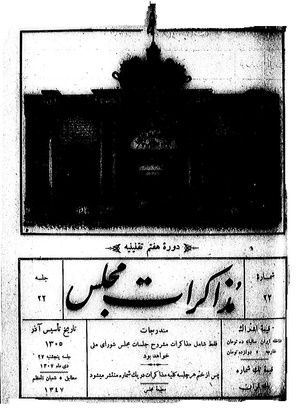 دورهٔ هفتم تقنینیه
شماره
۲۲
مذاکرات مجلس
جلسه
۲۲
قیمة اشتراك
داخله ایران سالیانه ده تومان
خارجه » دوازده تومان
قیمة تك شماره
یك قران
مندرجات
فقط شامل مذاکرات مشروح جلسات مجلس شورای ملی
خواهد بود
پس از ختم هر جلسه کلیه مذاکرات در یك شماره منتشر میشود
مطبعهٔ مجلس
تاریخ تأسیس آذر
۱۳۰۵
جلسه پنجشنبه ۲۷
دی ماه ۱۳۰۷
مطابق ٥ شعبان المعظم
۱۳٤۷